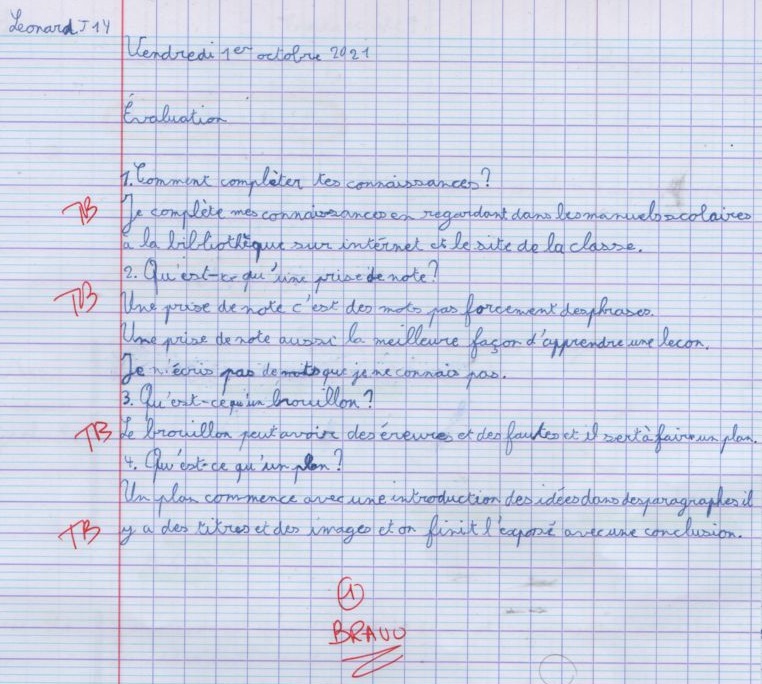 Leonard J14
Vendredi 1er octobre 2021
Évaluation
1. Comment complèter tes connaissances?
TB Je complète mes connaissances en regardant dans les manuels scolaires
à la bibliothèque sur internet et le site de la classe.
2. Qu'est-ce qu'une prise de note?
TB Une prise de note c'est des mots pas forcement des phrases.
Une prise de note aussi la meilleure façon d'apprendre une lecon.
Je n'écris pas de mots que je ne connais pas.
3. Qu'est-ce qu'un brouillon?
TB Le brouillon peut avoir des éreures et des fautes et il sert à faire un plan.
4. Qu'est-ce qu'un plan?
Un plan commence avec une introduction des idées dans des paragraphes il
TB y a des titres et des images et on finit l'exposé avec une conclusion.
1
BRAVO